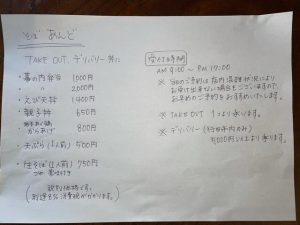 そば あんど
TAKE OUT、デリバリー 弁当
・幕の内弁当 1000円
・ 〃 2000円
・えび天丼 1400円
・親子丼 650円
からあげ 800円
・天ぷら(1人前) 500円
・生そば(1人前) 750円
つゆ 薬味付き
(税別価格です。
別途8%消費税がかかります。)
受付時間
AM 9:00 ~ PM 17:00
※ 当日のご予約は店内混雑状況により
お受け出来ない場合もございますので、
お早めのご予約をおすすめいたします。
※ TAKE OUT 1つより承ります。
※ デリバリー(行田市内のみ)
5000円以上より承ります。